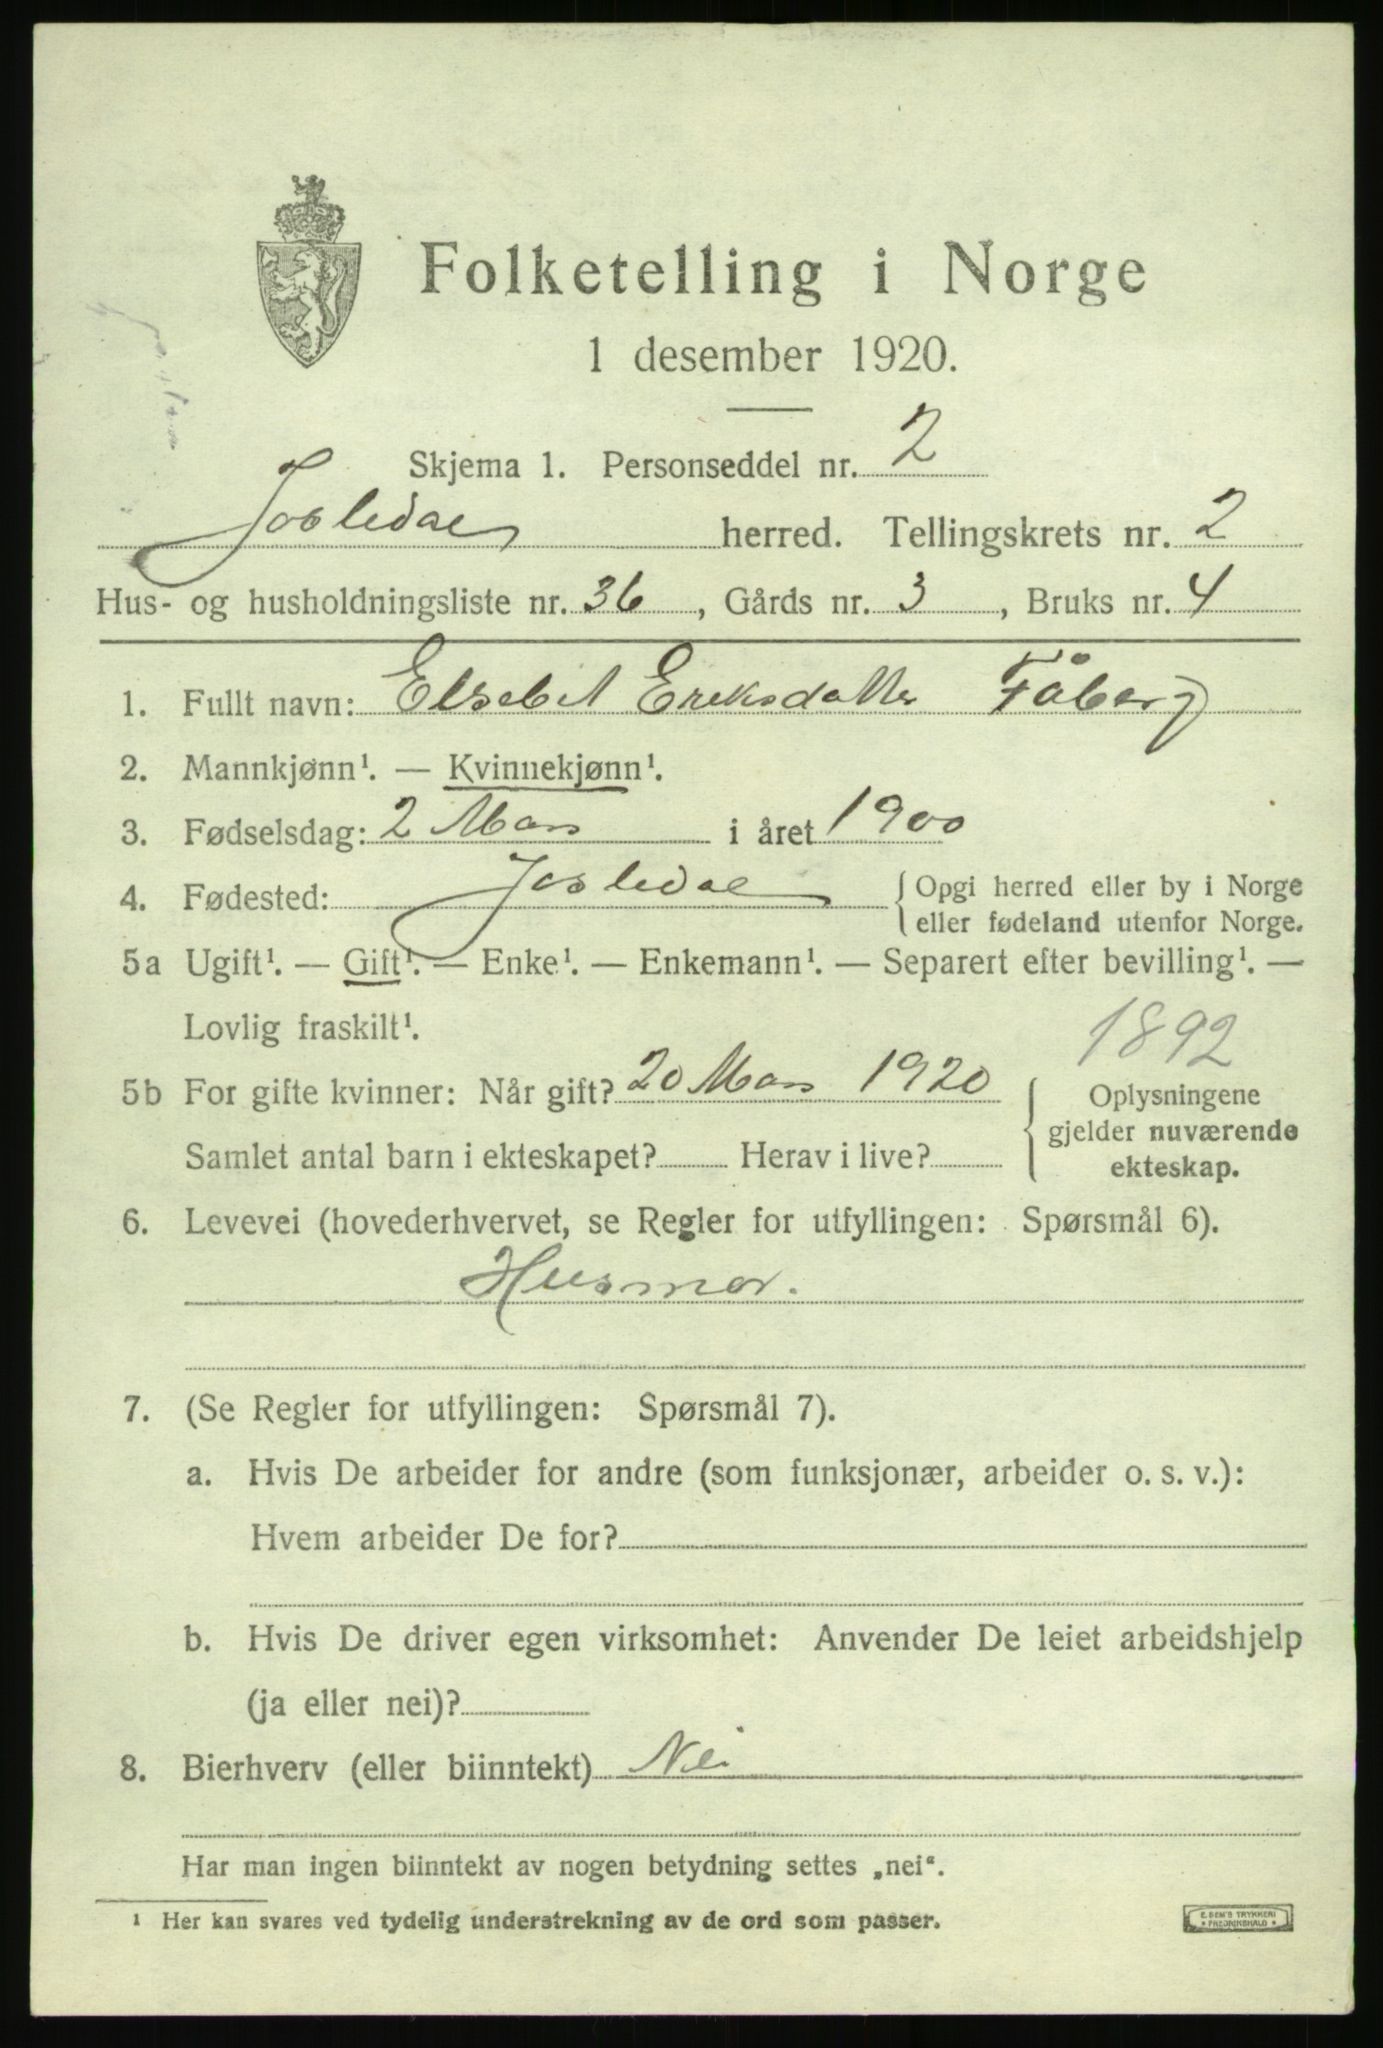 Folketelling i Norge
1 desember 1920.
Skjema 1. Personseddel nr. 2
Jostedal herred. Tellingskrets nr. 2
Hus- og husholdningsliste nr. 36, Gårds nr. 3, Bruks nr. 4
1. Fullt navn: Elsebet Eriksdatter Fåberg
2. Mannkjønn¹. — Kvinnekjønn¹.
3. Fødselsdag: 2 Mars i året 1900
4. Fødested: Jostedal { Opgi herred eller by i Norge
eller fødeland utenfor Norge.
5a Ugift¹. — Gift¹. — Enke¹. — Enkemann¹. — Separert efter bevilling¹. —
Lovlig fraskilt¹.
1892
5b For gifte kvinner: Når gift? 20 Mars 1920 { Oplysningene
gjelder nuværende
Samlet antal barn i ekteskapet? Herav i live? ekteskap.
6. Levevei (hovederhvervet, se Regler for utfyllingen: Spørsmål 6).
Husmor.
7. (Se Regler for utfyllingen: Spørsmål 7).
a. Hvis De arbeider for andre (som funksjonær, arbeider o. s. v.):
Hvem arbeider De for?
b. Hvis De driver egen virksomhet: Anvender De leiet arbeidshjelp
(ja eller nei)?
8. Bierhverv (eller biinntekt) Nei
Har man ingen biinntekt av nogen betydning settes „nei“.
¹ Her kan svares ved tydelig understrekning av de ord som passer.
E. SEM'S TRYKKERI
* FREDRIKSHALD *